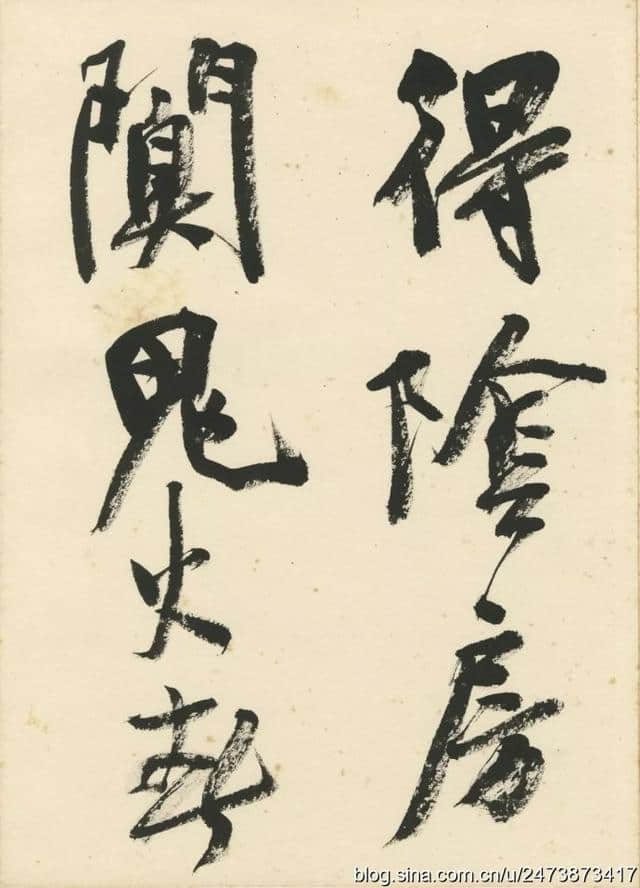 得陰房
闃鬼火春
blog.sina.com.cn/u/2473873417